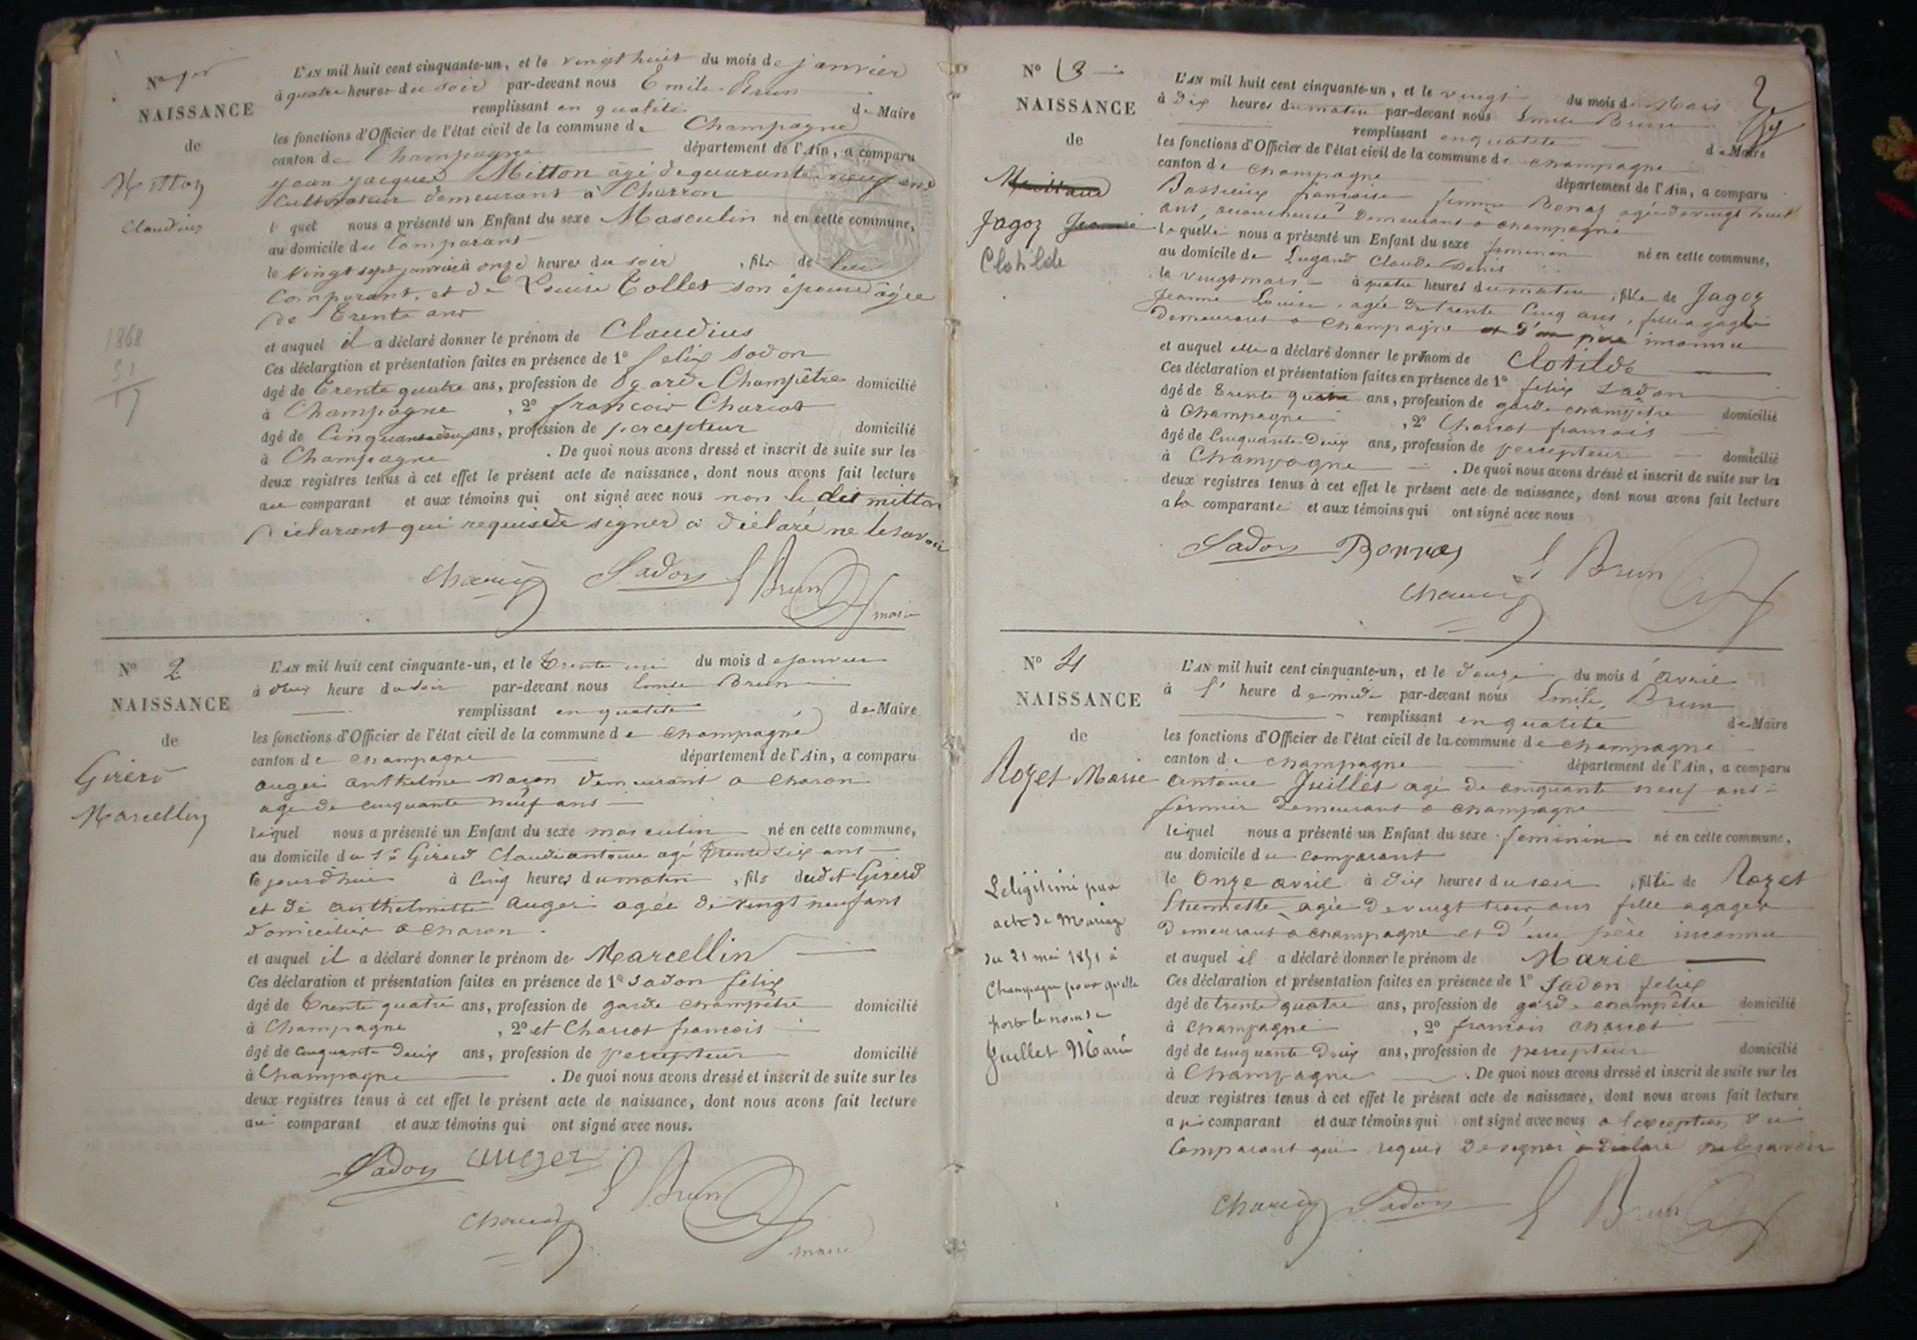 NAISSANCE
de
Mitton
Claudius
1868
51
17
L'AN mil huit cent cinquante-un, et le vingt huit du mois de janvier
à quatre heures du soir par-devant nous Emile Brun
remplissant en qualité de Maire
les fonctions d'Officier de l'état civil de la commune de Champagne
canton de Champagne département de l'Ain, a comparu
jean jacques Mitton âgé de quarante neuf ans
cultivateur demeurant à Charron
lequel nous a présenté un Enfant du sexe Masculin né en cette commune,
au domicile du comparant
le vingt sept janvier à onze heures du soir, fils de lui
comparant, et de Louise Collet son épouse âgée
de Trente ans
et auquel il a déclaré donner le prénom de Claudius
Ces déclaration et présentation faites en présence de 1° felix Sadon
âgé de trente quatre ans, profession de garde Champêtre domicilié
à Champagne, 2° françois Charcot
âgé de Cinquante deux ans, profession de percepteur domicilié
à Champagne. De quoi nous avons dressé et inscrit de suite sur les
deux registres tenus à cet effet le présent acte de naissance, dont nous avons fait lecture
au comparant et aux témoins qui ont signé avec nous non le dit mitton
déclarant qui requis de signer a déclaré ne le savoir
Sadon E Brun
maire
N° 2
NAISSANCE
de
Girerd
Marcellin
L'AN mil huit cent cinquante-un, et le trente un du mois de janvier
à deux heure du soir par-devant nous Emile Brun
remplissant en qualité de Maire
les fonctions d'Officier de l'état civil de la commune de champagne
canton de champagne département de l'Ain, a comparu
auger anthelme maçon demeurant a charon
age de cinquante neuf ans
lequel nous a présenté un Enfant du sexe masculin né en cette commune,
au domicile du Sr Girerd Claude antoine agé trente six ans
le jourd'hui à cinq heures du matin, fils dudit Girerd
et de anthelmette auger agée de vingt neuf ans
domiciliés a charon.
et auquel il a déclaré donner le prénom de Marcellin
Ces déclaration et présentation faites en présence de 1° Sadon félix
âgé de trente quatre ans, profession de garde champêtre domicilié
à Champagne, 2° et Charcot francois
âgé de cinquante deux ans, profession de percepteur domicilié
à Champagne. De quoi nous avons dressé et inscrit de suite sur les
deux registres tenus à cet effet le présent acte de naissance, dont nous avons fait lecture
au comparant et aux témoins qui ont signé avec nous.
Sadon auger E Brun
maire
2
N° 3
NAISSANCE
de
Jagoz Jeanne
Clotilde
L'AN mil huit cent cinquante-un, et le vingt du mois de Mars
à dix heures du matin par-devant nous Emile Brun
remplissant en qualité de Maire
les fonctions d'Officier de l'état civil de la commune de champagne
canton de champagne département de l'Ain, a comparu
françoise femme Bonaz agée de vingt huit
ans, accoucheuse demeurant a champagne
laquelle nous a présenté un Enfant du sexe feminin né en cette commune,
au domicile de Lugand Claude Denis
le vingt mars à quatre heures du matin, fille de Jagoz
jeanne Louise, agée de trente cinq ans, fille a gages
demeurant a champagne et d'un père inconnu
et auquel elle a déclaré donner le prénom de Clotilde
Ces déclaration et présentation faites en présence de 1° felix Sadon
âgé de trente quatre ans, profession de garde champêtre domicilié
à Champagne, 2° Charcot francois
âgé de Cinquante Deux ans, profession de percepteur domicilié
à Champagne. De quoi nous avons dressé et inscrit de suite sur les
deux registres tenus à cet effet le présent acte de naissance, dont nous avons fait lecture
a la comparante et aux témoins qui ont signé avec nous
Sadon Bonnaz E Brun
N° 4
NAISSANCE
de
Rozet Marie
Légitimé par
acte de Mariage
du 21 mai 1851 à
Champagne pour qu'elle
porte le nom de
Juillet Marie
L'AN mil huit cent cinquante-un, et le douze du mois d'avril
à heure de midi par-devant nous Emile Brun
remplissant en qualité de Maire
les fonctions d'Officier de l'état civil de la commune de champagne
canton de champagne département de l'Ain, a comparu
antoine Juillet agé de cinquante neuf ans
fermier demeurant a champagne
lequel nous a présenté un Enfant du sexe feminin né en cette commune,
au domicile du comparant
le onze avril à dix heures du soir, fille de Rozet
Etiennette agée de vingt trois ans fille a gages
demeurant a champagne et d'un père inconnu
et auquel il a déclaré donner le prénom de Marie
Ces déclaration et présentation faites en présence de 1° Sadon felix
âgé de trente quatre ans, profession de garde champêtre domicilié
à Champagne, 2° francois charcot
âgé de cinquante deux ans, profession de percepteur domicilié
à Champagne. De quoi nous avons dressé et inscrit de suite sur les
deux registres tenus à cet effet le présent acte de naissance, dont nous avons fait lecture
au comparant et aux témoins qui ont signé avec nous a l'exception du
Comparant qui requis de signer a déclaré ne le savoir
Sadon E Brun